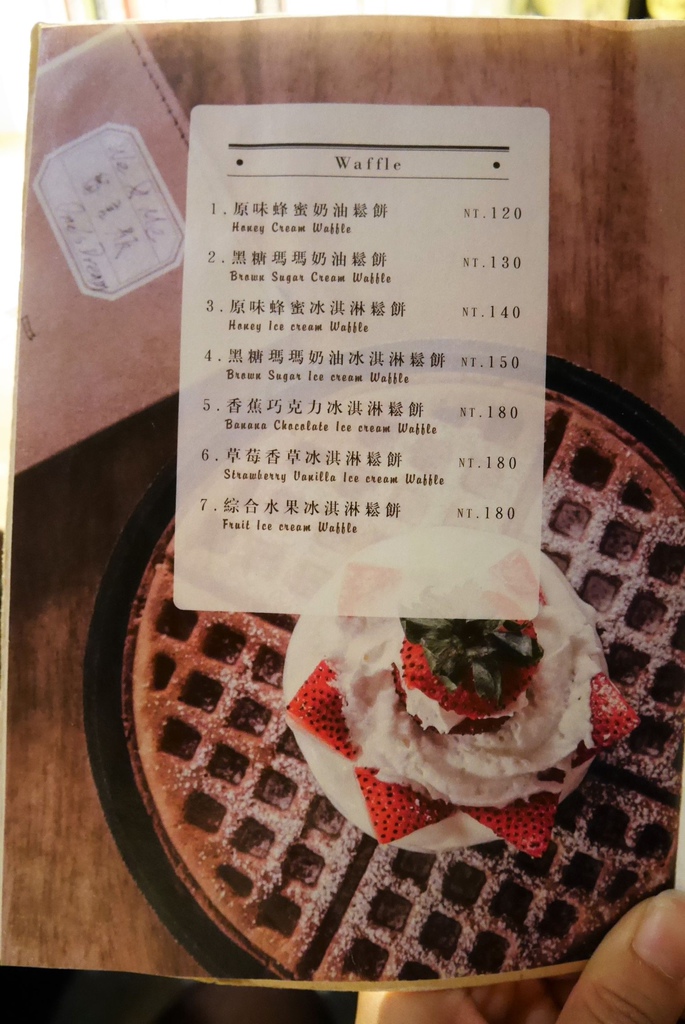 Waffle
1. 原味蜂蜜奶油鬆餅 NT.120
Honey Cream Waffle
2. 黑糖瑪瑪奶油鬆餅 NT.130
Brown Sugar Cream Waffle
3. 原味蜂蜜冰淇淋鬆餅 NT.140
Honey Ice cream Waffle
4. 黑糖瑪瑪奶油冰淇淋鬆餅 NT.150
Brown Sugar Ice cream Waffle
5. 香蕉巧克力冰淇淋鬆餅 NT.180
Banana Chocolate Ice cream Waffle
6. 草莓香草冰淇淋鬆餅 NT.180
Strawberry Vanilla Ice cream Waffle
7. 綜合水果冰淇淋鬆餅 NT.180
Fruit Ice cream Waffle